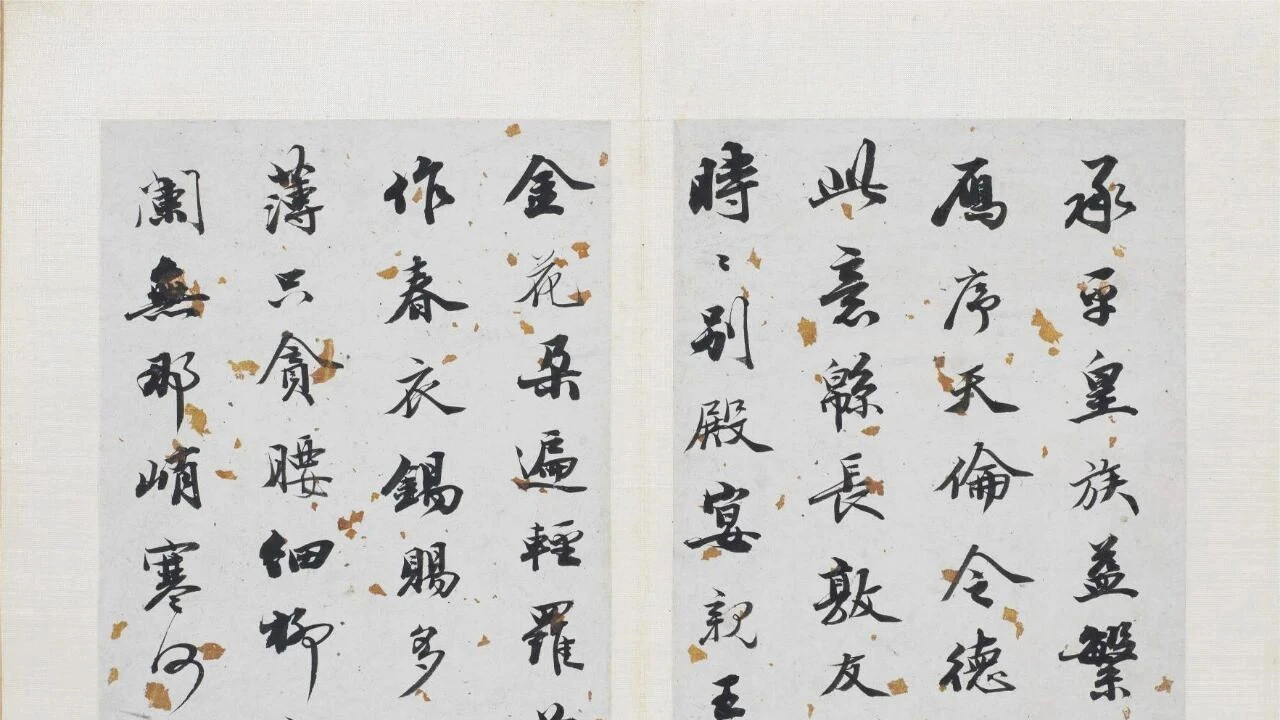 承平皇族益繁
鴈序天倫令德
此意緜長敦友
時〻別殿宴親王
金花朵遍輕羅
作春衣錫賜多
薄只貪腰細柳
闌無那峭寒何